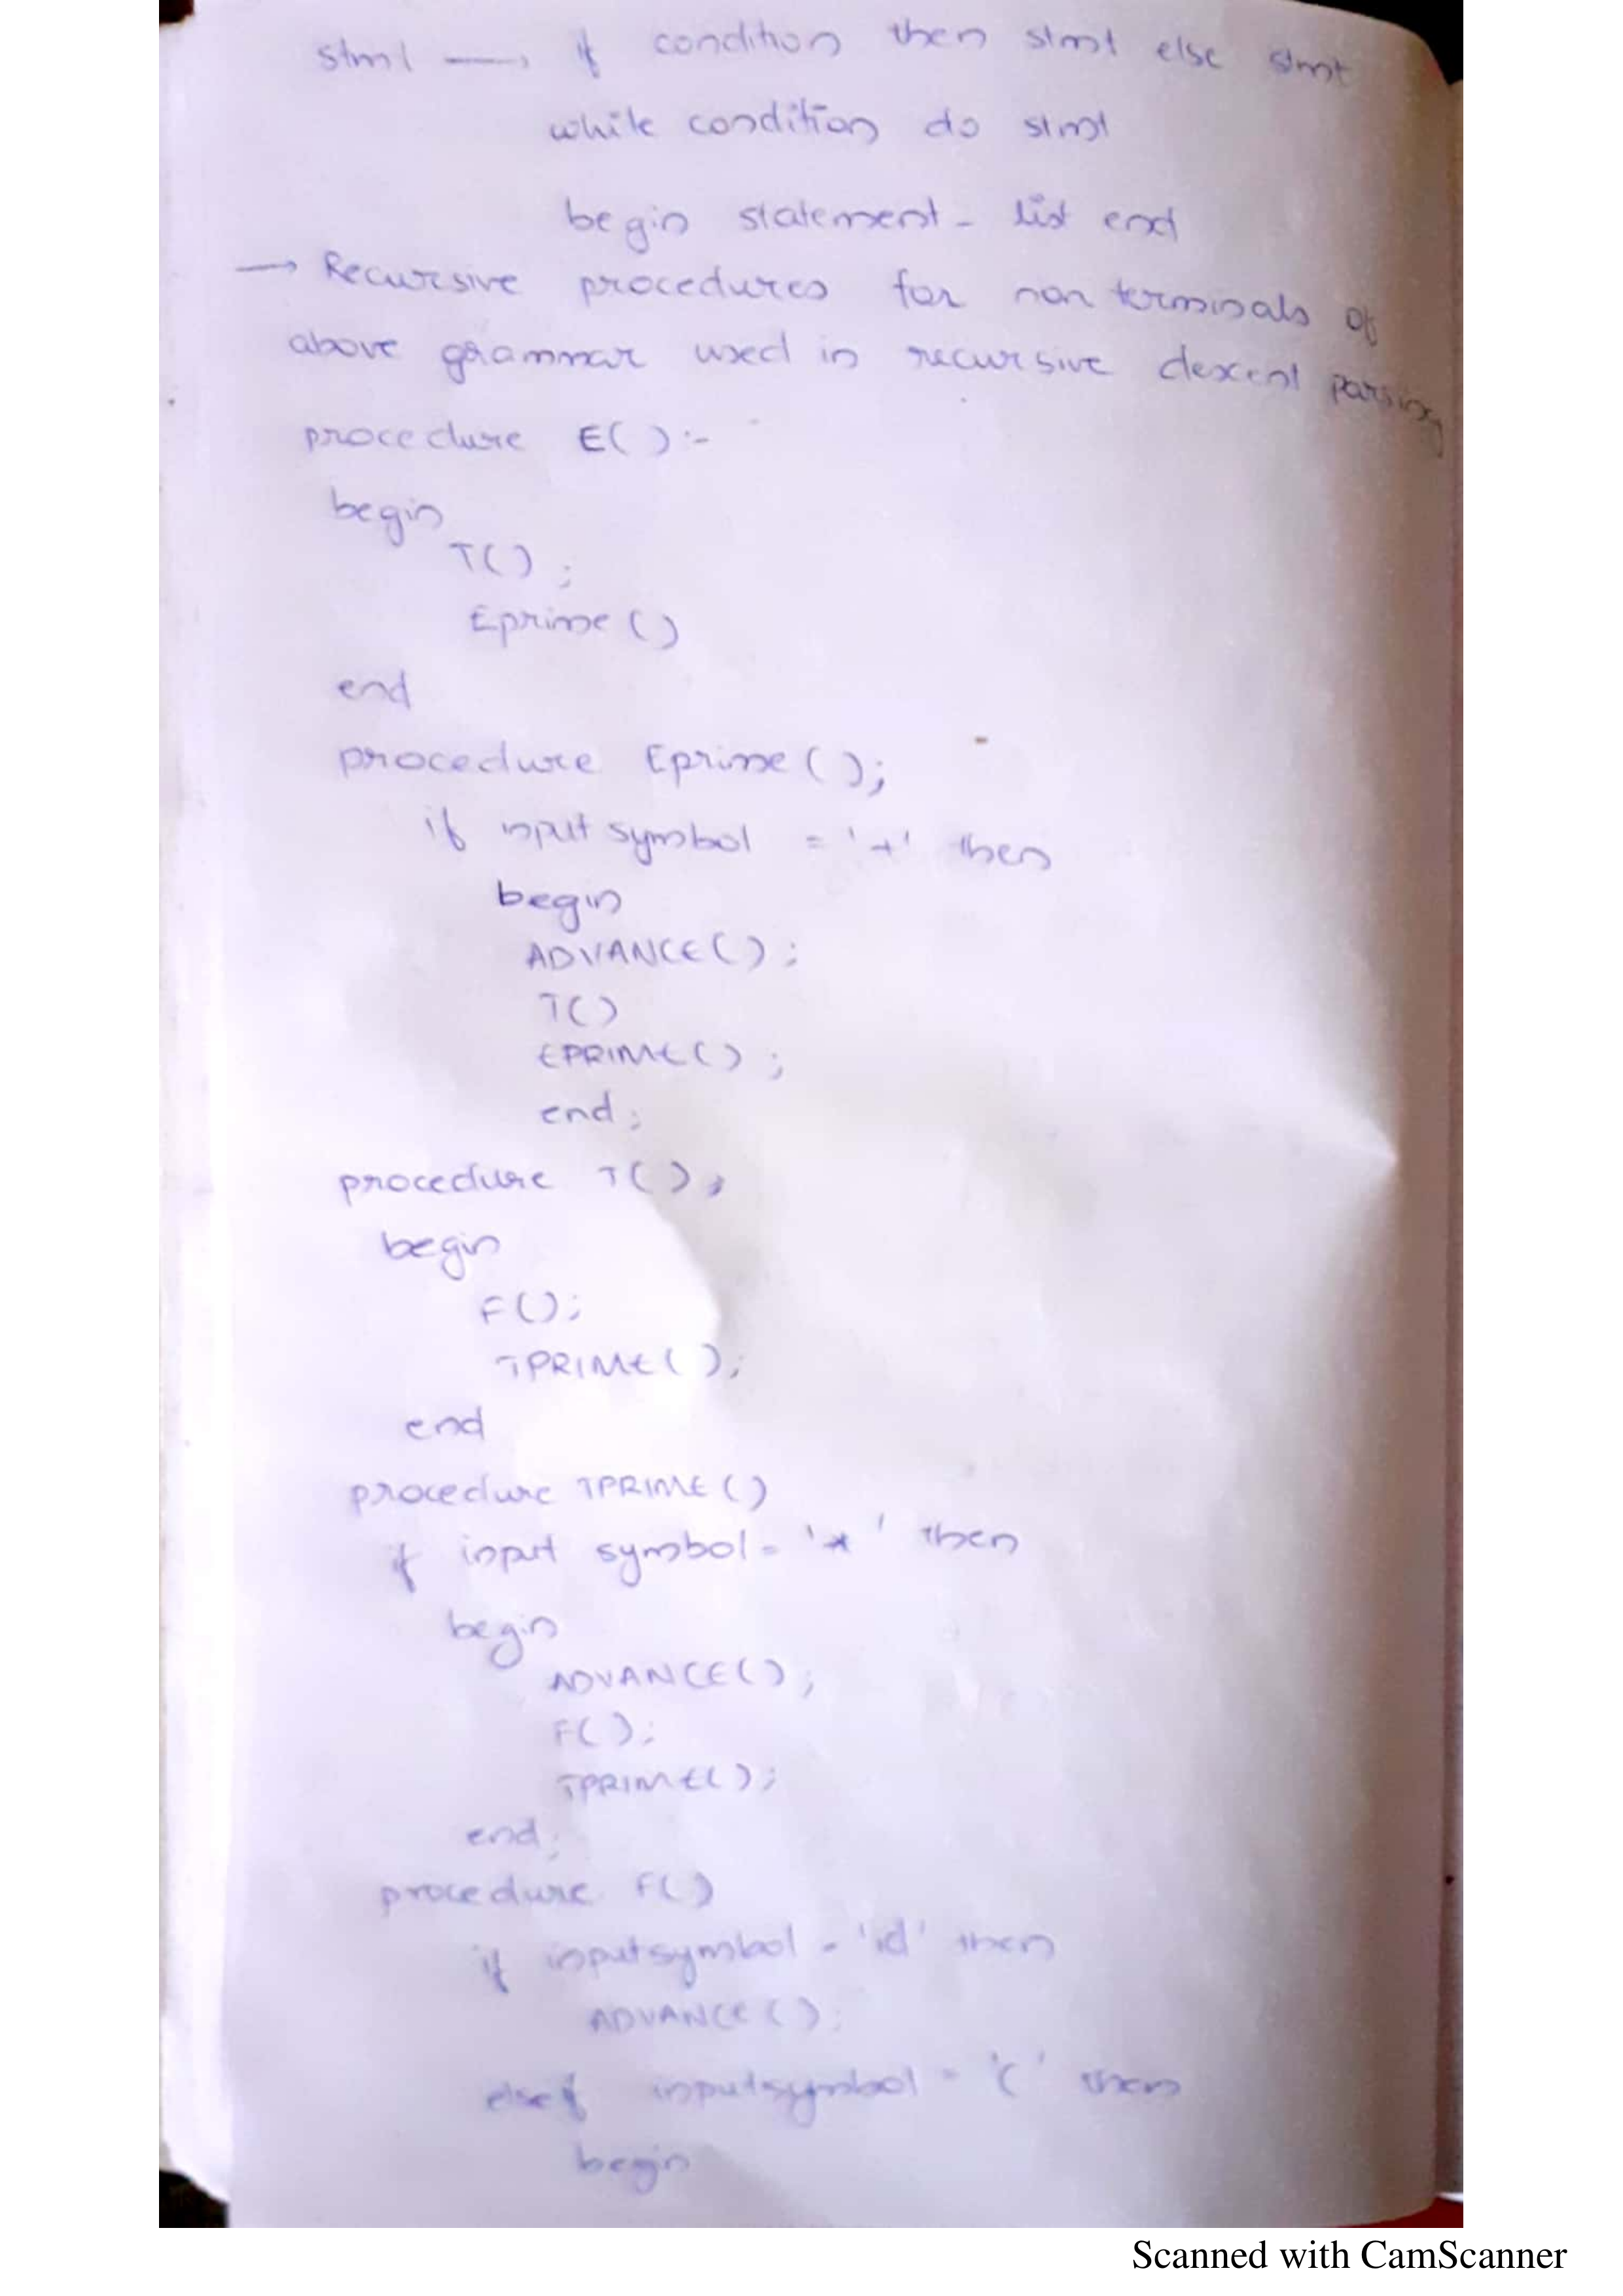 stmt → if condition then stmt else stmt
while condition do stmt
begin statement - list end
→ Recursive procedures for non terminals of
above grammar used in recursive descent parsing
procedure E() :-
begin
T() ;
Eprime ()
end
procedure Eprime ();
if input symbol = '+' then
begin
ADVANCE() ;
T()
EPRIME() ;
end ;
procedure T() ;
begin
F();
TPRIME( );
end
procedure TPRIME ()
if input symbol = '*' then
begin
ADVANCE() ;
F( );
TPRIME();
end ;
procedure F()
if inputsymbol = 'id' then
ADVANCE ( );
else if inputsymbol = '(' then
begin
Scanned with CamScanner